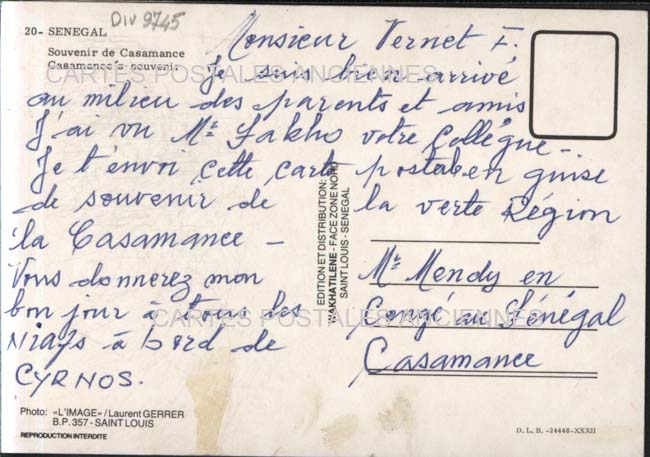 Div 9745
20- SENEGAL
Souvenir de Casamance
Casamance's souvenir
CARTES POSTALES ANCIENNES
Monsieur Vernet F.
Je suis bien arrivé
au milieu des parents et amis
J'ai vu Mr Sakho votre Collègue -
Je t'envoi cette carte postal en guise
de souvenir de la verte Région
la Casamance -
Vous donnerez mon
bon jour à tous les
à bord de
CYRNOS.
EDITION ET DISTRIBUTION:
WAKHATILENE - FACE ZONE NORD
SAINT LOUIS - SENEGAL
Mr Mendy en
Congé au Sénégal
Casamance
CARTES POSTALES ANCIENNES
Photo: «L'IMAGE» / Laurent GERRER
B.P. 357 - SAINT LOUIS
REPRODUCTION INTERDITE
D. L. B. -24448-XXXII